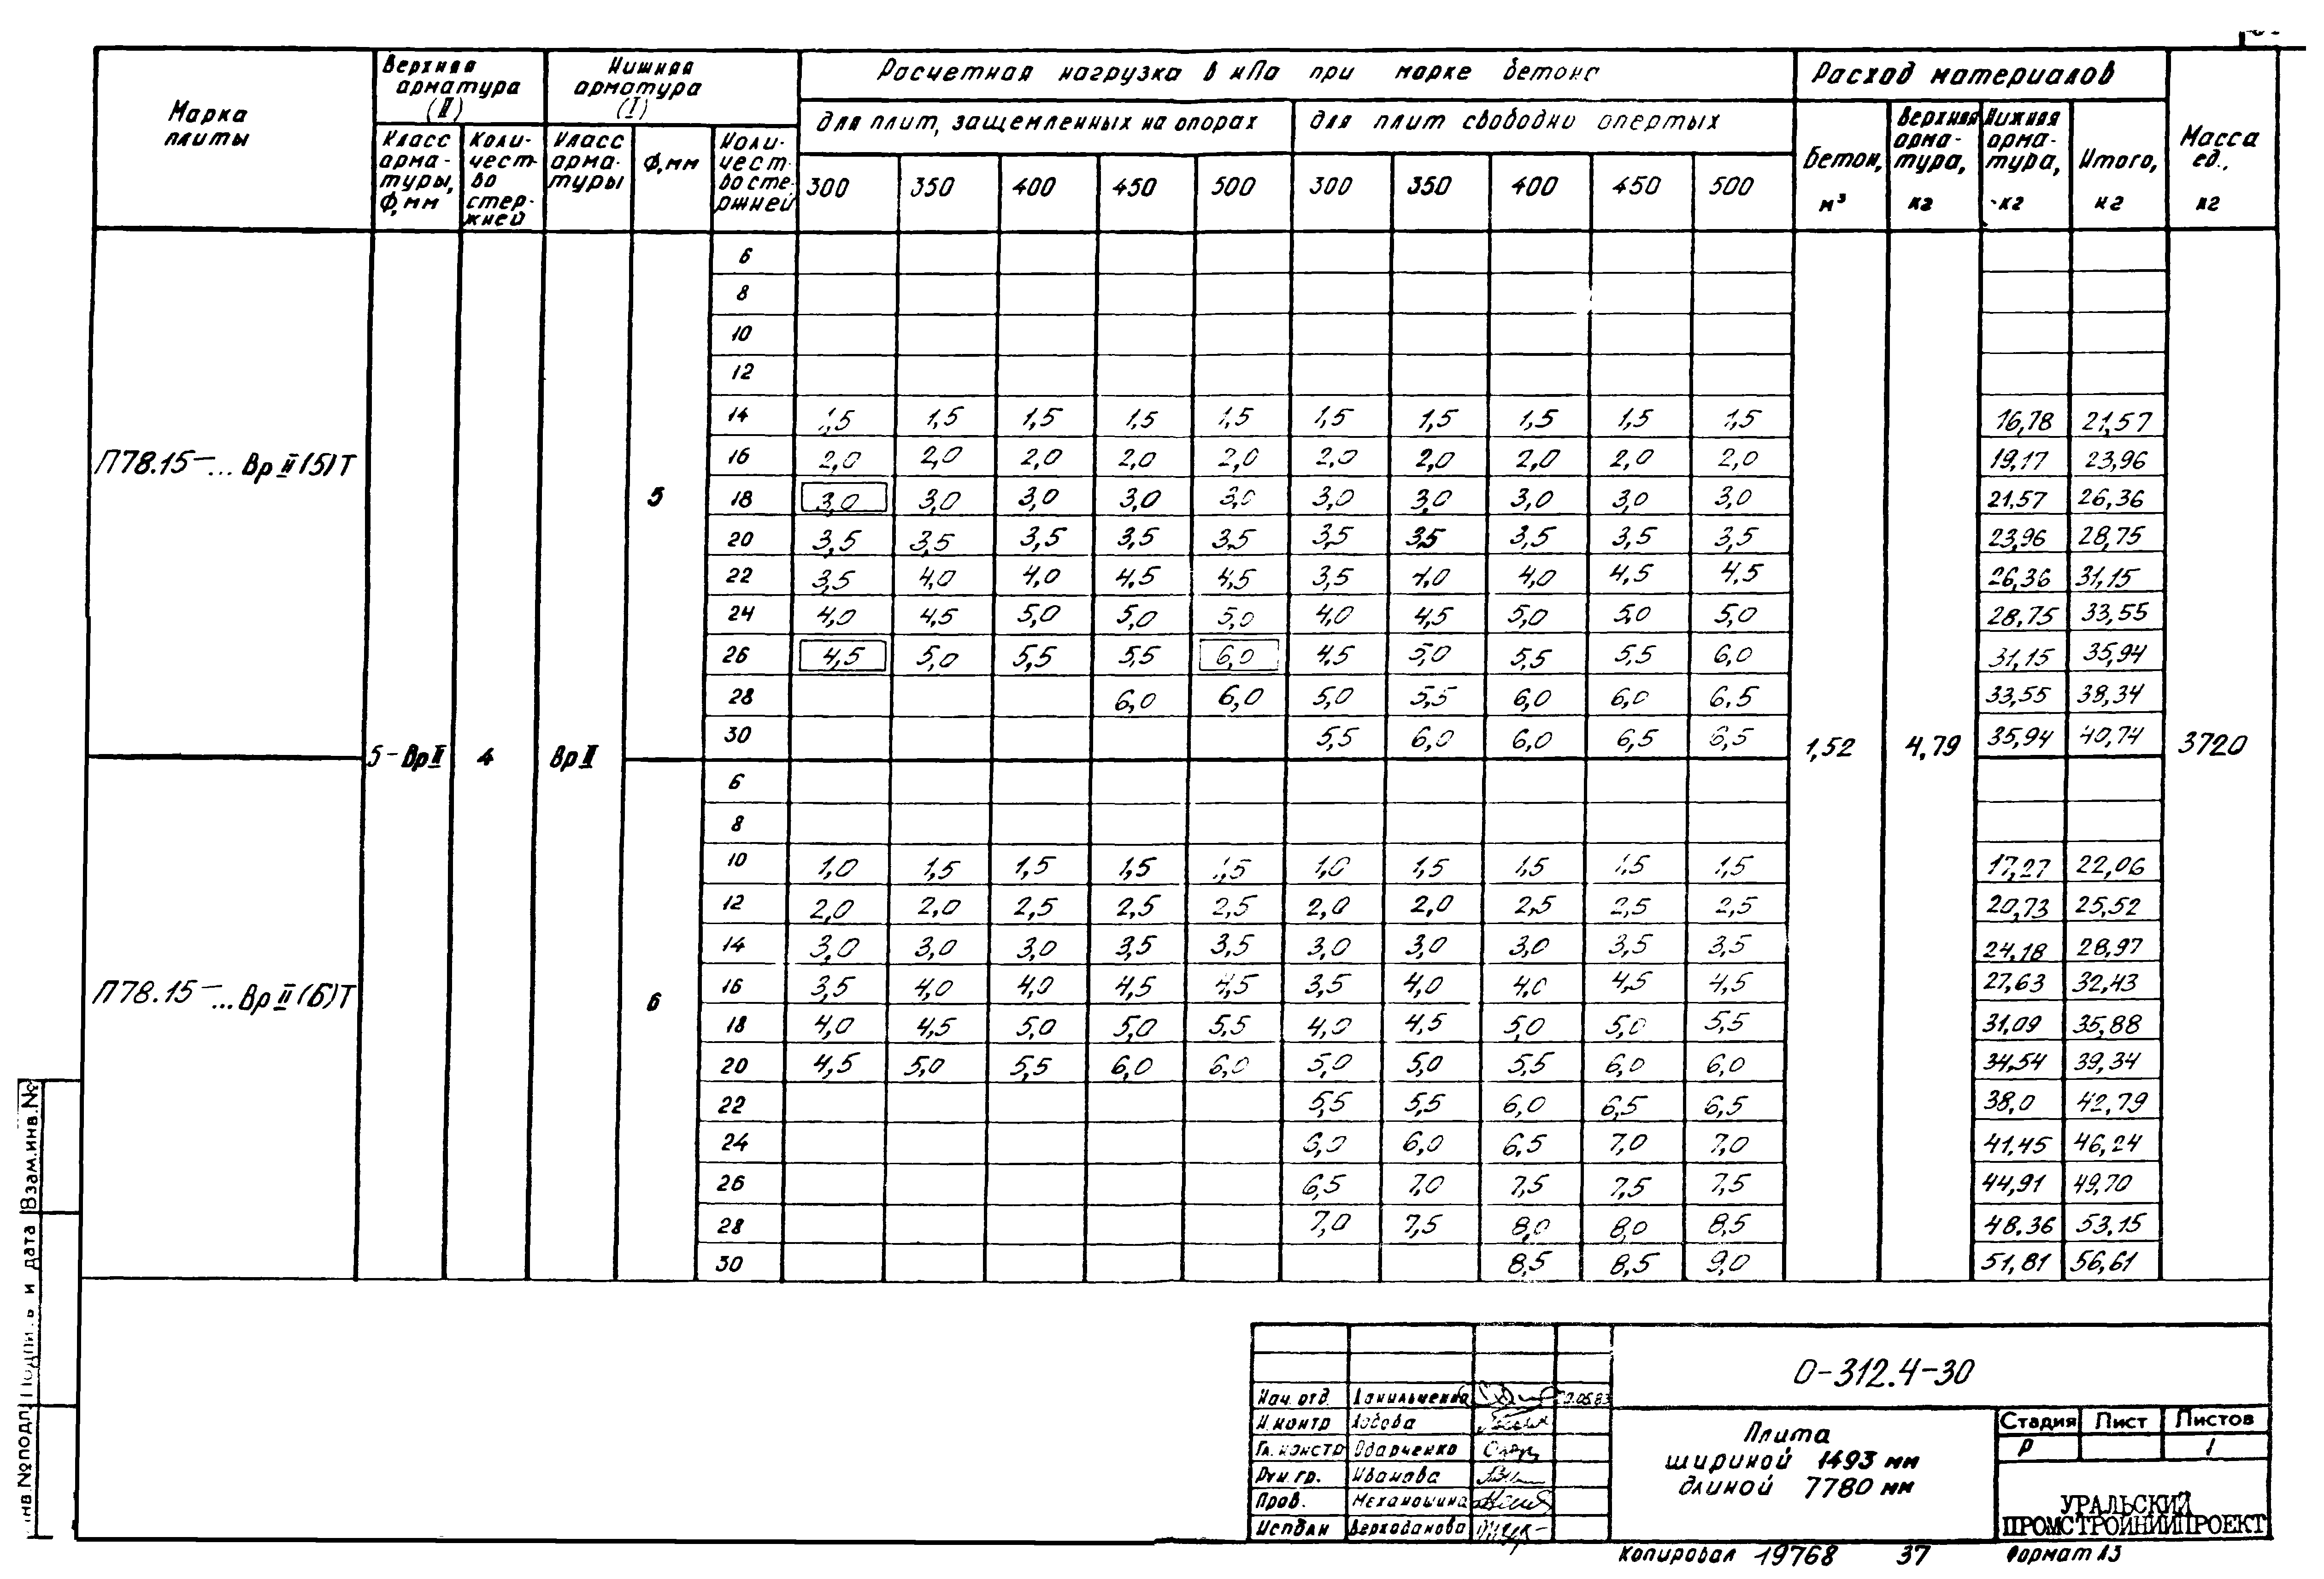 Марка плиты
Верхняя арматура (II)
Нижняя арматура (I)
Расчетная нагрузка в кПа при марке бетона
Расход материалов
Масса ед., кг
Класс арматуры, Ф, мм
Количество стержней
Класс арматуры
Ф, мм
Количество стержней
для плит, защемленных на опорах
для плит свободно опертых
Бетон, м³
Верхняя арматура, кг
Нижняя арматура, кг
Итого, кг
300 350 400 450 500 300 350 400 450 500
П78.15-... Вр II (5)Т
5-Вр II 4 Вр II 5
1,52 4,79 3720
6
8
10
12
14 1,5 1,5 1,5 1,5 1,5 1,5 1,5 1,5 1,5 1,5 16,78 21,57
16 2,0 2,0 2,0 2,0 2,0 2,0 2,0 2,0 2,0 2,0 19,17 23,96
18 3,0 3,0 3,0 3,0 3,0 3,0 3,0 3,0 3,0 3,0 21,57 26,36
20 3,5 3,5 3,5 3,5 3,5 3,5 3,5 3,5 3,5 3,5 23,96 28,75
22 3,5 4,0 4,0 4,5 4,5 3,5 4,0 4,0 4,5 4,5 26,36 31,15
24 4,0 4,5 5,0 5,0 5,0 4,0 4,5 5,0 5,0 5,0 28,75 33,55
26 4,5 5,0 5,5 5,5 6,0 4,5 5,0 5,5 5,5 6,0 31,15 35,94
28 6,0 6,0 5,0 5,5 6,0 6,0 6,5 33,55 38,34
30 5,5 6,0 6,0 6,5 6,5 35,94 40,74
П78.15-... Вр II (6)Т
6
6
8
10 1,0 1,5 1,5 1,5 1,5 1,0 1,5 1,5 1,5 1,5 17,27 22,06
12 2,0 2,0 2,5 2,5 2,5 2,0 2,0 2,5 2,5 2,5 20,73 25,52
14 3,0 3,0 3,0 3,5 3,5 3,0 3,0 3,0 3,5 3,5 24,18 28,97
16 3,5 4,0 4,0 4,5 4,5 3,5 4,0 4,0 4,5 4,5 27,63 32,43
18 4,0 4,5 5,0 5,0 5,5 4,0 4,5 5,0 5,0 5,5 31,09 35,88
20 4,5 5,0 5,5 6,0 6,0 5,0 5,0 5,5 6,0 6,0 34,54 39,34
22 5,5 5,5 6,0 6,5 6,5 38,0 42,79
24 6,0 6,0 6,5 7,0 7,0 41,45 46,24
26 6,5 7,0 7,5 7,5 7,5 44,91 49,70
28 7,0 7,5 8,0 8,0 8,5 48,36 53,15
30 8,5 8,5 9,0 51,81 56,61
О-312.4-30
Нач. отд. Данильченко
Н. контр Лобова
Гл. констр Одарченко
Рук. гр. Иванова
Пров. Механошина
Исполн Верходанова
Плита
шириной 1493 мм
длиной 7780 мм
Стадия Лист Листов
Р 1
УРАЛЬСКИЙ
ПРОМСТРОЙНИИПРОЕКТ
Копировал 19768 37 Формат А3
Взам.инв.№
и дата
инв.№подл.